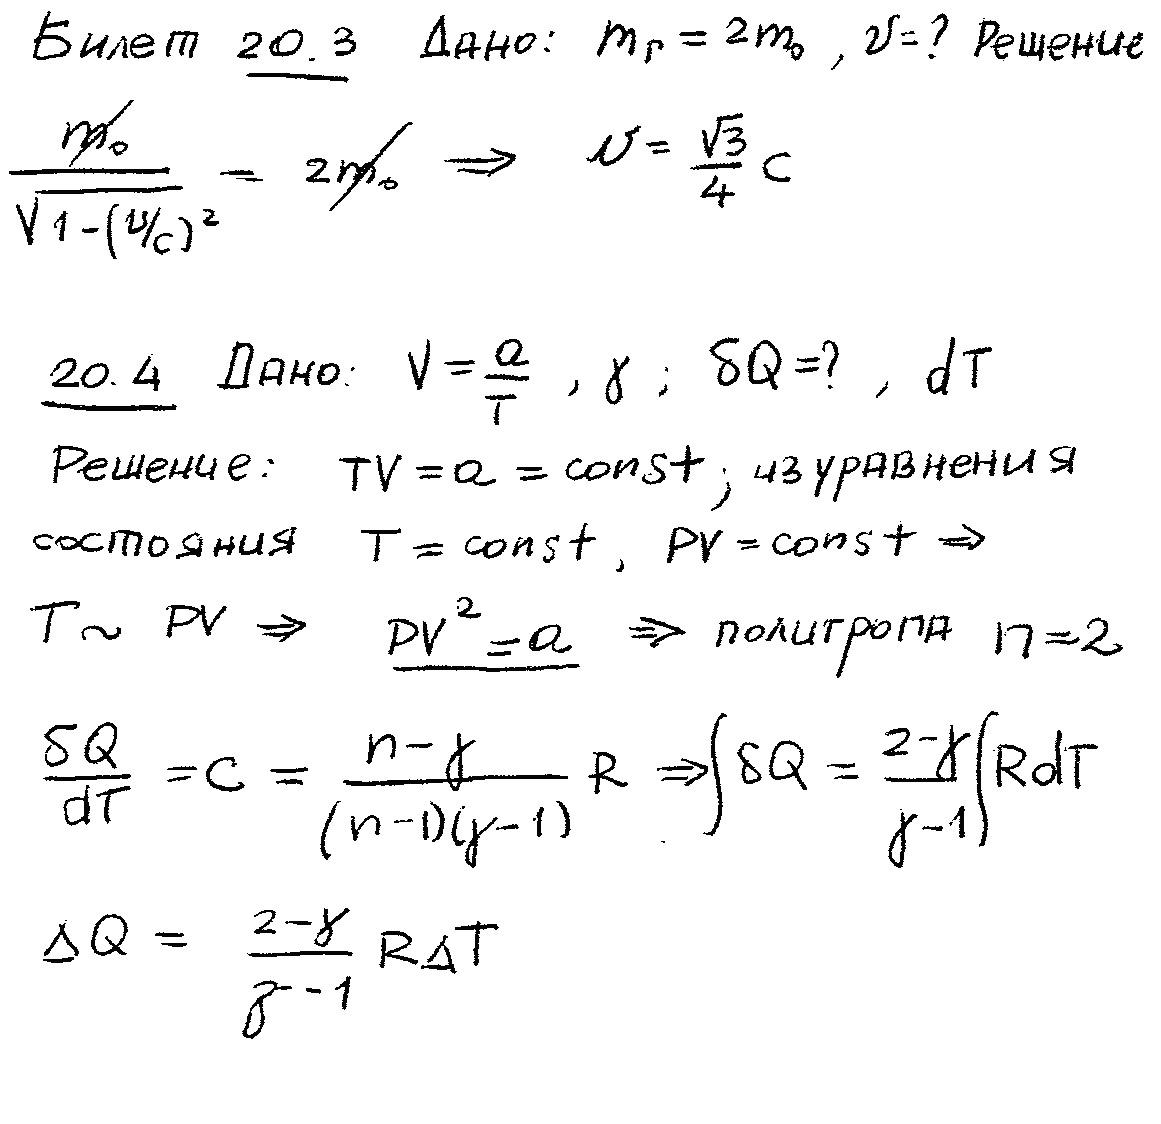 Билет 20.3 Дано: m_r = 2m₀, v=? Решение
m₀/√(1-(v/c)²) = 2m₀ ⇒ v = √3/4 c
20.4 Дано: V = a/T, γ; δQ=?, dT
Решение: TV = a = const; из уравнения
состояния T = const, PV = const ⇒
T ~ PV ⇒ PV² = a ⇒ политропа n=2
δQ/dT = C = (n-γ)/((n-1)(γ-1)) R ⇒ ∫δQ = (2-γ)/(γ-1) ∫RdT
ΔQ = (2-γ)/(γ-1) RΔT